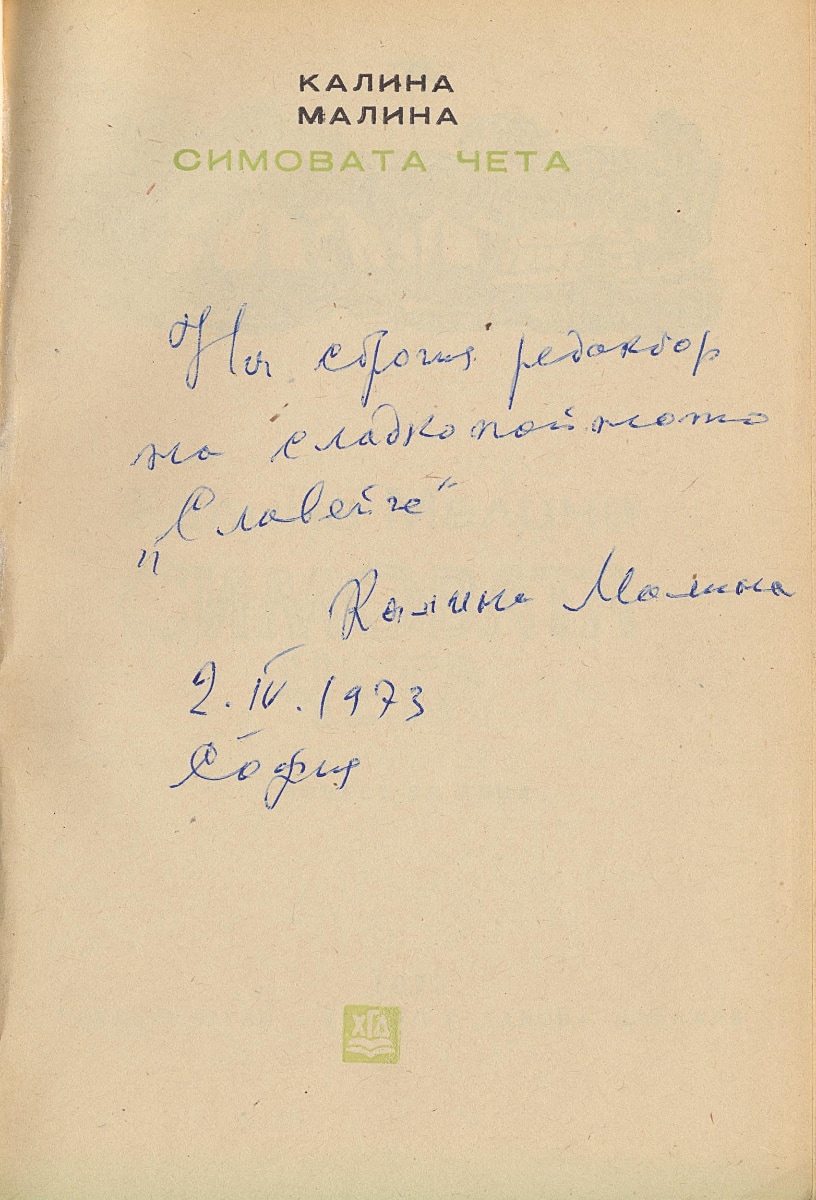 КАЛИНА
МАЛИНА
СИМОВАТА ЧЕТА
На строгия редактор
на сладкопойното
„Славейче“
Калина Малина
2.IV.1973
София
ХГД